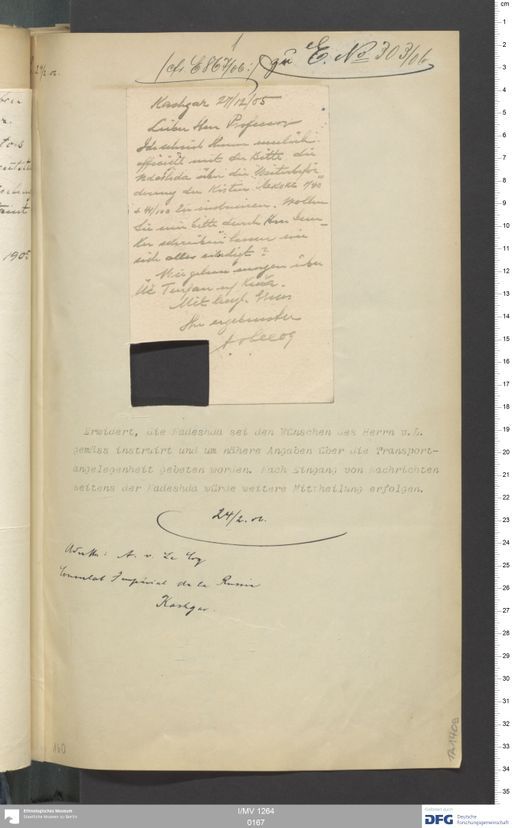 1
(cfr. E 867/06.) zu E. No 303/06
Kashgar 27/12/05
Lieber Herr Professor
Ich schreibe Ihnen
offiziell mit der Bitte die
Nadeshda über die Weiterbeför-
derung der Kisten
zu instruiren. Wollen
Sie mir bitte durch Herrn
schreiben lassen wie
sich alles erledigt?
Wir gehen morgen über
Üč Turfan
Mit bergl. Gruss
Ihr ergebenster
A v Le Coq
Erwidert, die Nadeshda sei den Wünschen des Herrn v. L.
gemäss instruirt und um nähere Angaben über die Transport-
angelegenheit gebeten worden. Nach Eingang von Nachrichten
seitens der Nadeshda würde weitere Mittheilung erfolgen.
24/2. 06.
Adresse: A. v. Le Coq
Consulat Impérial de la Russie
Kashgar.
160
Ethnologisches Museum
Staatliche Museen zu Berlin
I/MV 1264
0167
Gefördert durch
DFG Deutsche
Forschungsgemeinschaft